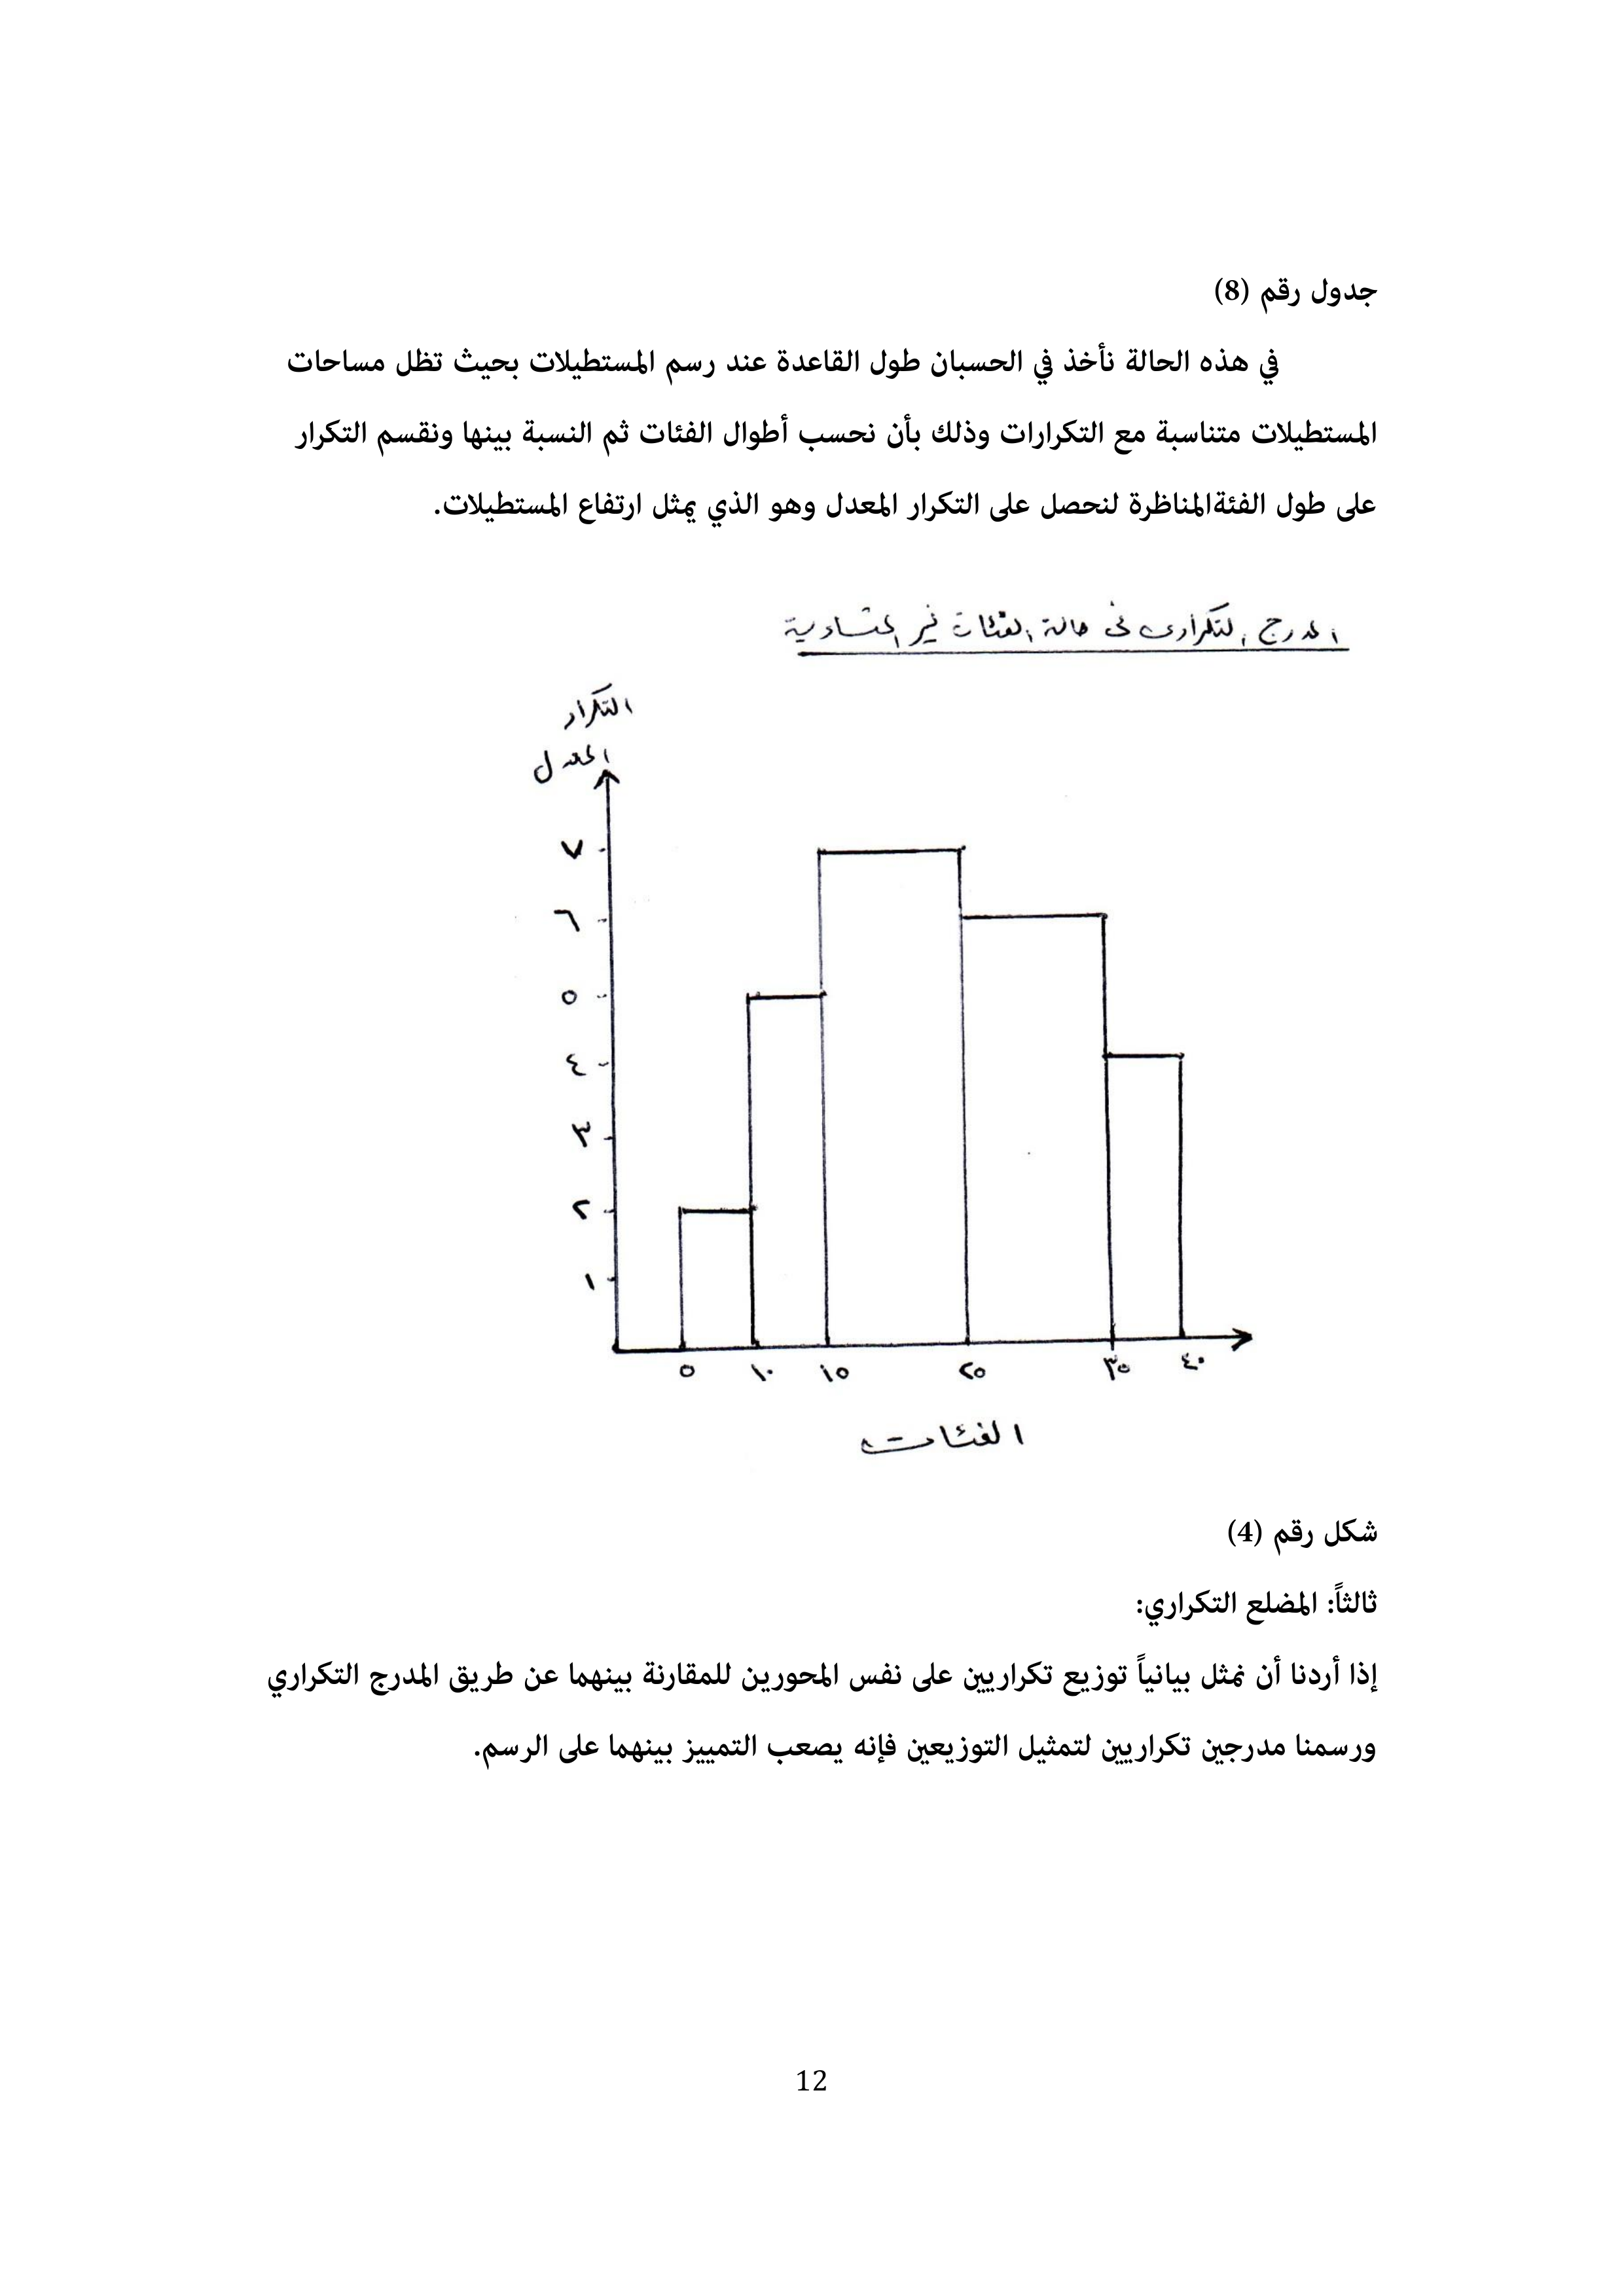 جدول رقم (8)
في هذه الحالة نأخذ في الحسبان طول القاعدة عند رسم المستطيلات بحيث تظل مساحات
المستطيلات متناسبة مع التكرارات وذلك بأن نحسب أطوال الفئات ثم النسبة بينها ونقسم التكرار
على طول الفئةالمناظرة لنحصل على التكرار المعدل وهو الذي يمثل ارتفاع المستطيلات.
المدرج التكرارى فى حالة الفئات غير المتساوية
التكرار
المعدل
٧
٦
٥
٤
٣
٢
١
٥ ١٠ ١٥ ٢٥ ٣٥ ٤٠
الفئات
شكل رقم (4)
ثالثاً: المضلع التكراري:
إذا أردنا أن نمثل بيانياً توزيع تكراريين على نفس المحورين للمقارنة بينهما عن طريق المدرج التكراري
ورسمنا مدرجين تكراريين لتمثيل التوزيعين فإنه يصعب التمييز بينهما على الرسم.
12